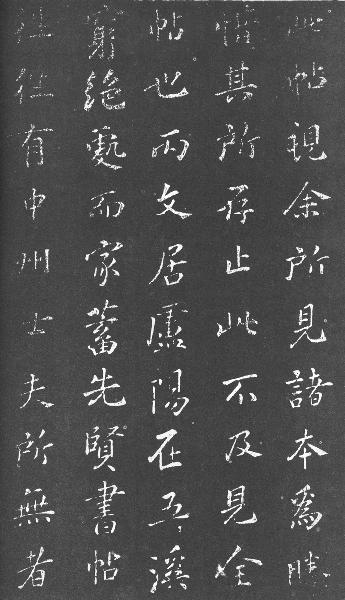 此帖視余所見諸本爲勝
惜其所存止此不及見全
帖也丙文居廬陽在五溪
窮絶處而家蓄先賢書帖
往往有中州士夫所無者